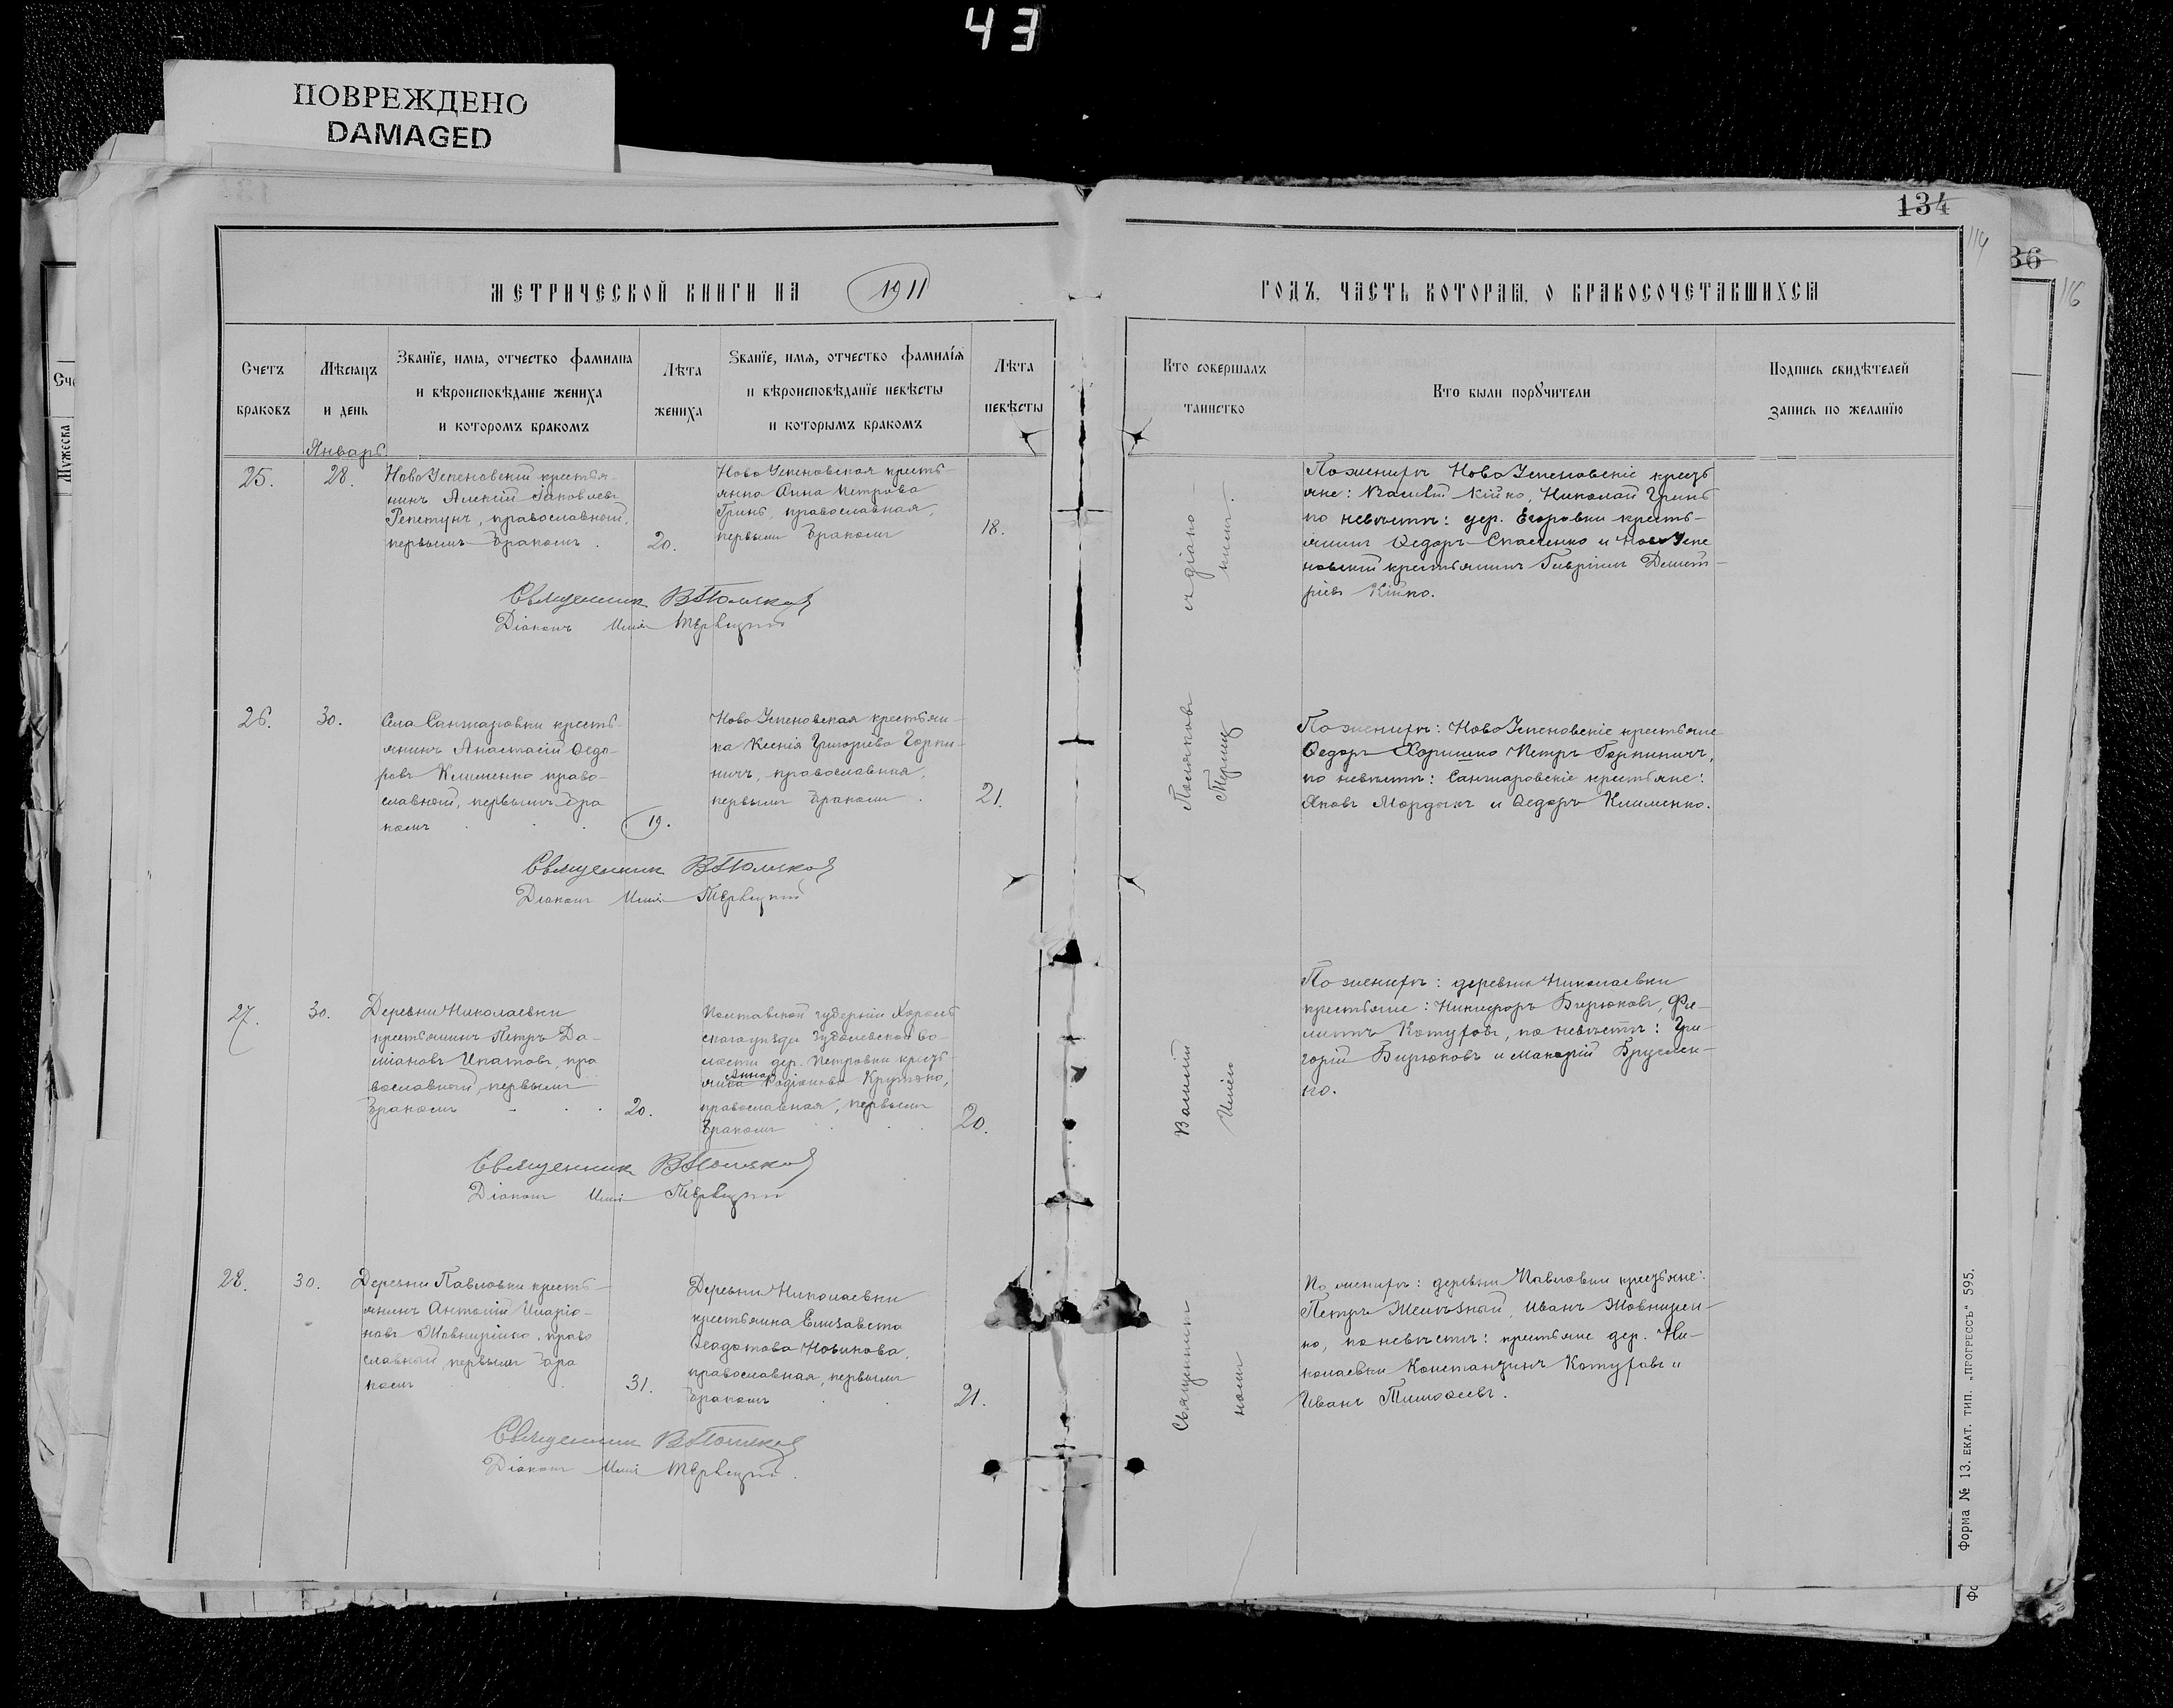 43
ПОВРЕЖДЕНО
DAMAGED
134
114
36
116
МЕТРИЧЕСКОЙ КНИГИ НА 1911
ГОДЪ, ЧАСТЬ ВТОРАЯ, О БРАКОСОЧЕТАВШИХСЯ
Счетъ
браковъ
Мѣсяцъ
и день
Званіе, имя, отчество фамилия
и вѣроисповѣданіе жениха
и которомъ бракомъ
Лѣта
жениха
Званіе, имя, отчество фамилія
и вѣроисповѣданіе невѣсты
и которымъ бракомъ
Лѣта
невѣсты
Кто совершалъ
таинство
Кто были поручители
Подпись свидѣтелей
запись по желанію
Январь
25.
28.
НовоУспеновскій крестья-
нинъ Алексій Іаковлевъ
Репетунъ, православный,
первымъ бракомъ
20.
НовоУспеновская кресть-
янка Анна Петрова
Гринь, православная,
первымъ бракомъ
18.
По женихѣ НовоУспеновскіе кресть
яне: Василій Кійко, Николай Гринь
по невѣстѣ: дер. Егоровки кресть-
янинъ Ѳедоръ Спасенко и НовоУспе
новскій крестьянинъ Гавріилъ Димит-
ріевъ Кійко.
Священник ВПоляков
Діаконъ Илія Тервицкій
26.
30.
Села Санжаровки кресть-
янинъ Анастасій Ѳедо-
ровъ Клименко право-
славный, первымъ бра
комъ
19.
НовоУспеновская крестьян-
ка Ксенія Григорьева Горпи-
ничъ, православная,
первымъ бракомъ
21.
По женихѣ: НовоУспеновскіе крестьяне
Ѳедоръ Харишко Петръ Горпиничъ,
по невѣстѣ: Санжаровскіе крестьяне:
Яковъ Мордыкъ и Ѳедоръ Клименко.
Священник ВПоляков
Діаконъ Илія Тервицкій
27.
30.
Деревни Николаевки
крестьянинъ Петръ Да-
міановъ Ипатовъ, пра
вославный, первымъ
бракомъ
20.
Полтавской губерніи Хороль
скаго уѣзда во-
лости дер. Петровки кресть-
янка Анна Родіонова
православная, первымъ
бракомъ
20.
По женихѣ: деревни Николаевки
крестьяне: Никифоръ Бирюковъ, Фи-
липпъ Котуховъ, по невѣстѣ: Гри-
горій Бирюковъ и Макарій Бруслен-
ко.
Священник ВПоляков
Діаконъ Илія Тервицкій
28.
30.
Деревни Павловки кресть-
янинъ Антоній Иларіо-
новъ Жовниренко, право
славный, первымъ бра
комъ
31.
Деревни Николаевки
крестьянка Елизавета
Ѳеодотова Новикова,
православная, первымъ
бракомъ
21.
По женихѣ: деревни Павловки крестьяне:
Петръ Желѣзный, Иванъ Жовнирен-
ко, по невѣстѣ: крестьяне дер. Ни-
колаевки Константинъ Котуховъ и
Иванъ Тимоѳеевъ.
Священник ВПоляков
Діаконъ Илія Тервицкій.
Священникъ Василій Поляковъ съ діако-
номъ Иліею
Форма № 13. ЕКАТ. ТИП. „ПРОГРЕССЪ" 595.